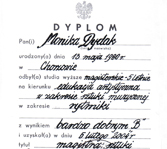 DYPLOM
Pan(i) Monika Dydak
urodzony(a) dnia 13 maja 1980 r.
w Chorzowie
odbył(a) studia wyższe magisterskie 5-letnie
na kierunku edukacja artystyczna
w zakresie sztuki muzycznej
w zakresie rytmiki
z wynikiem bardzo dobrym "B"
i uzyskał(a) w dniu lutego 2004 r.
tytuł magistra sztuki